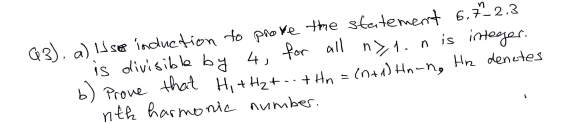 Q3). a) Use induction to prove the statement 6.7ⁿ-2.3
is divisible by 4, for all n⩾1. n is integer.
b) Prove that H₁+H₂+--+Hn = (n+1)Hn-n, Hn denotes
nth harmonic number.